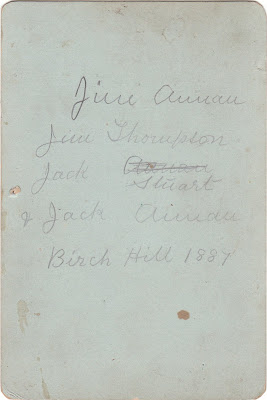 Jim Aiman
Jim Thompson
Jack
Stuart
& Jack Aiman
Birch Hill 1887